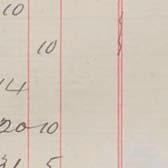 10
10
14
20 10
31 5